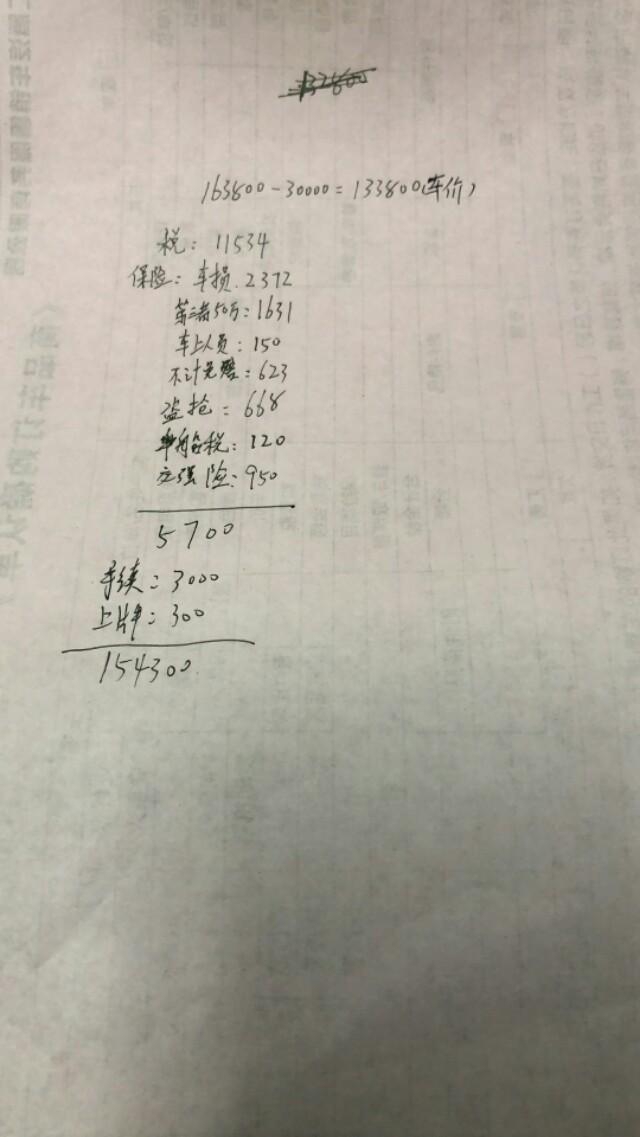 132800
163800-30000=133800(车价)
税：11534
保险：车损.2372
第三者50万：1631
车上人员：150
不计免赔：623
盗抢：668
车船税：120
交强险：950
5700
手续：3000
上牌：300
154300